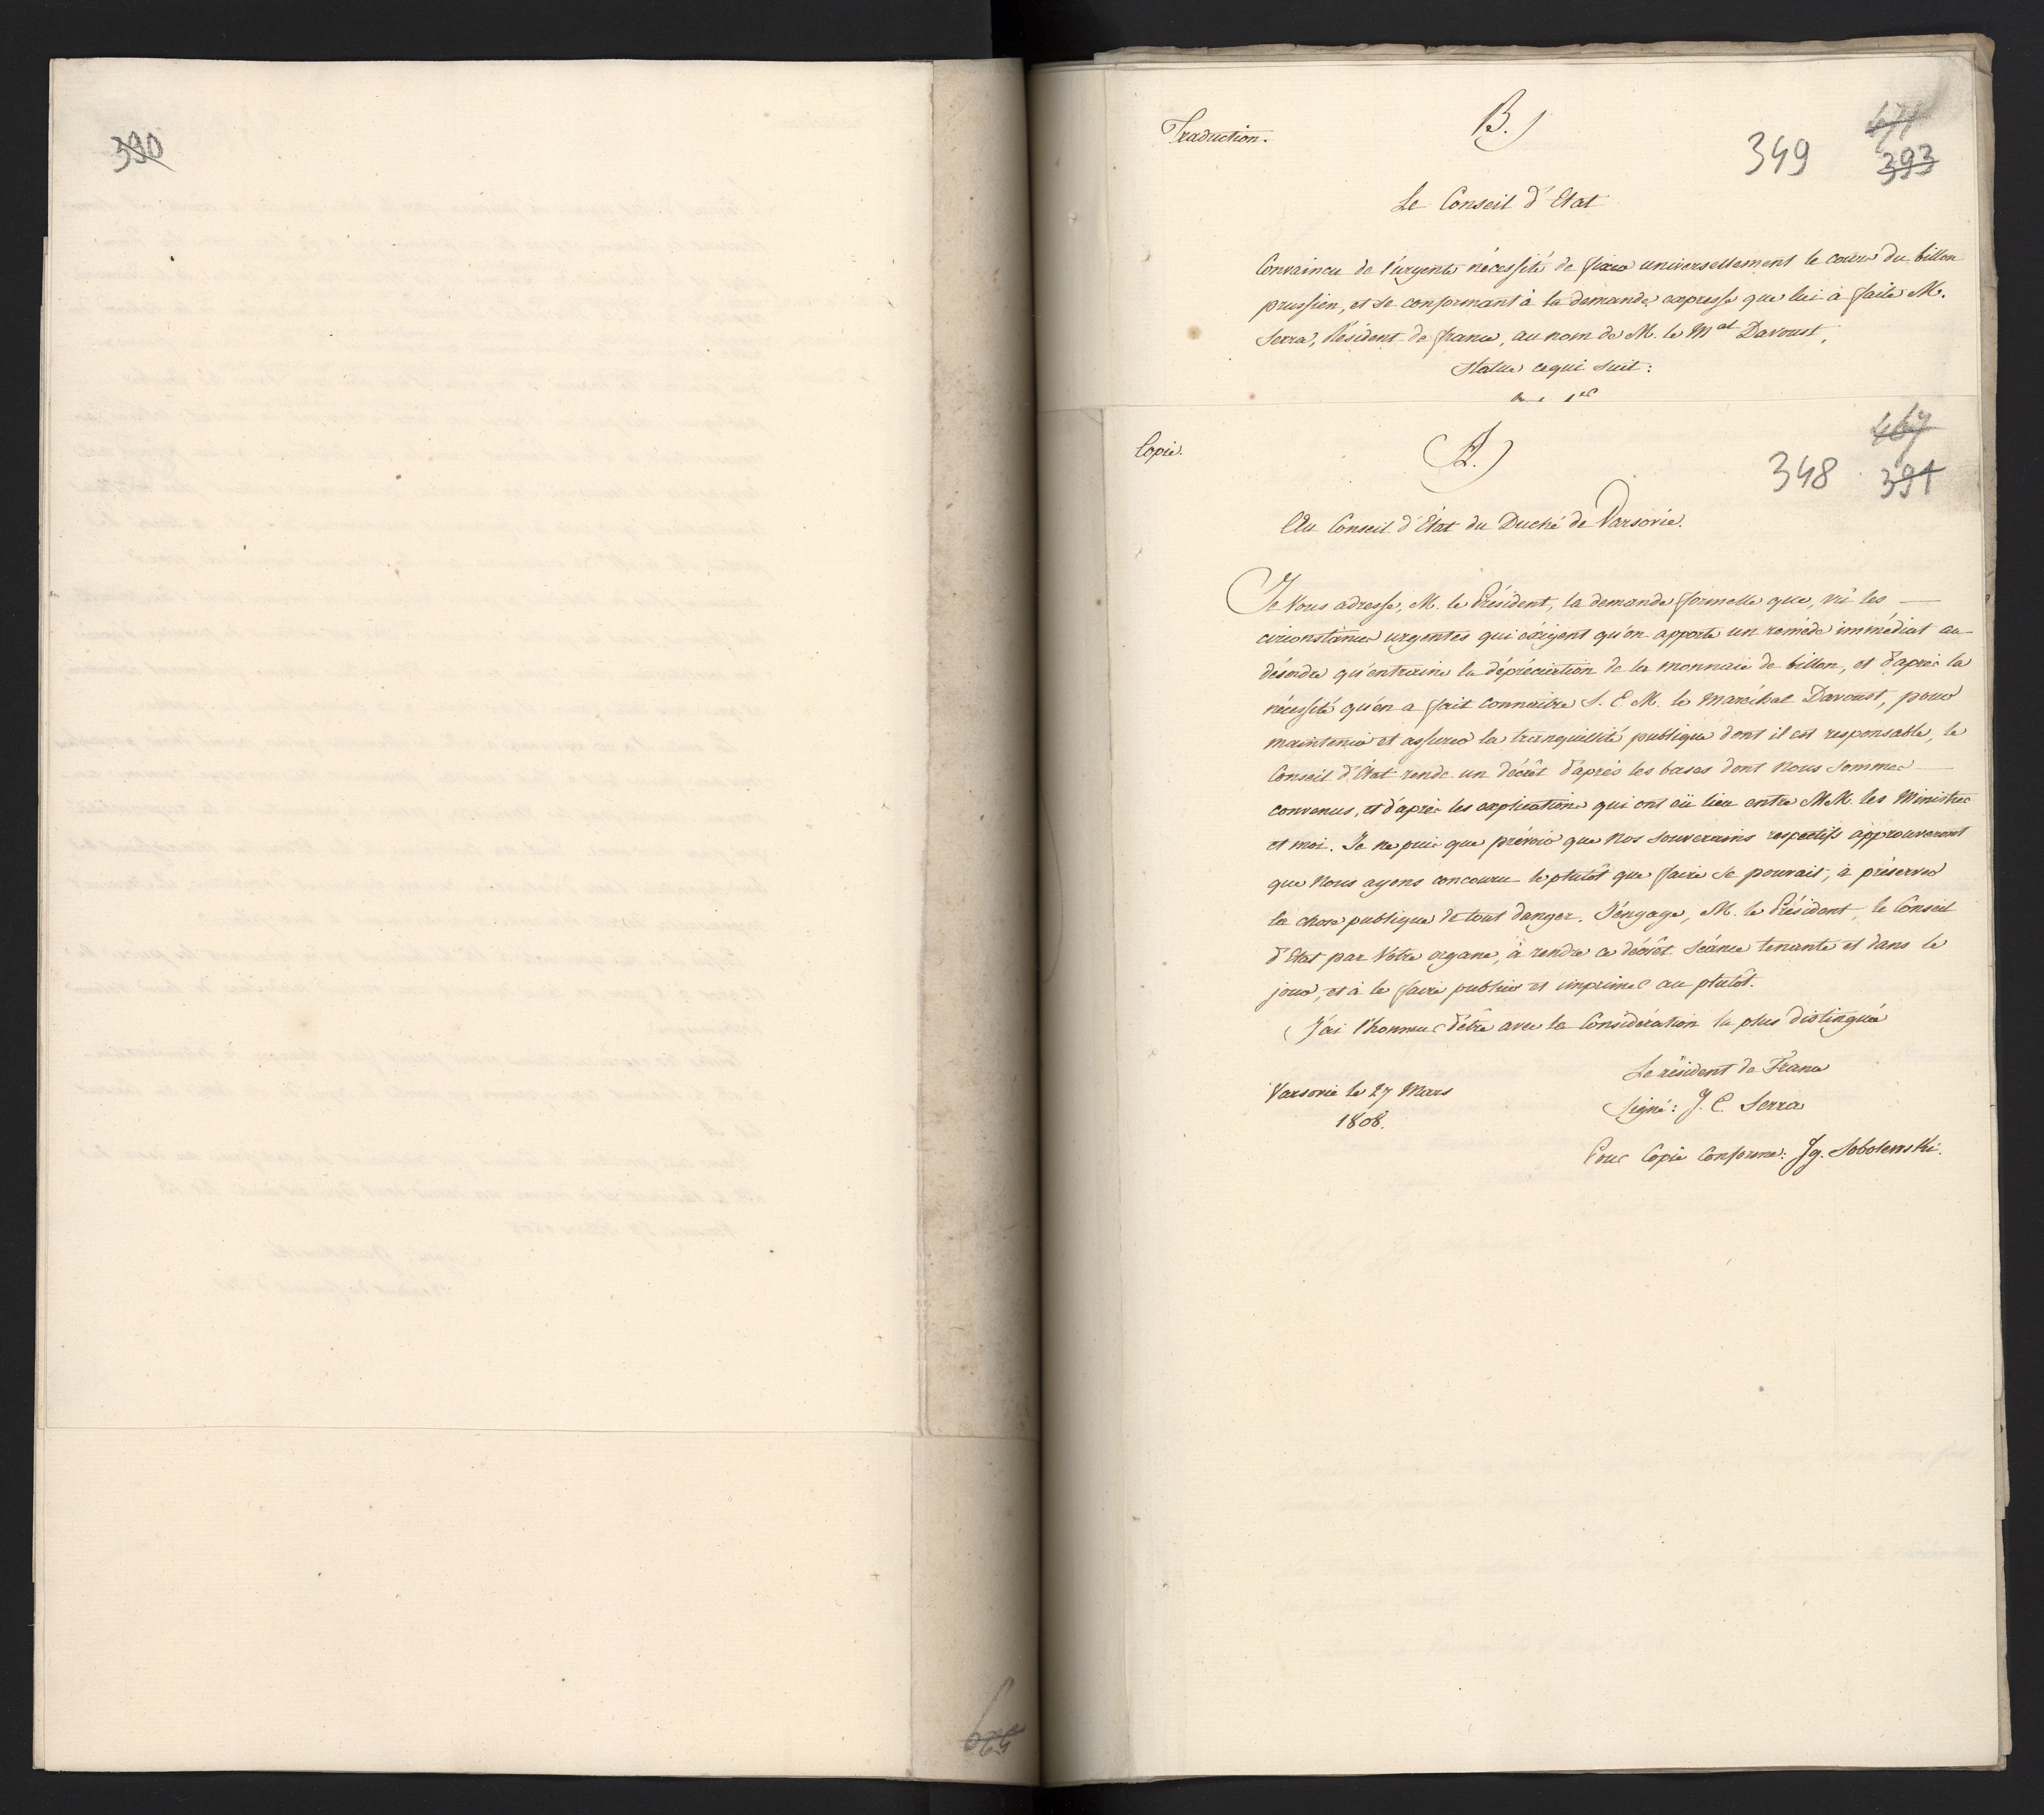 390
Traduction.
B.)
471
349
393
Le Conseil d'Etat
Convaincu de l'urgente nécessité de fixer universellement le cours du billon
prussien, et se conformant à la demande expresse que lui à faite M.
Serra, Résident de france, au nom de M. le Mal Davoust,
Statue ce qui suit:
1er
467
Copie.
A.)
348
391
Au Conseil d'Etat du Duché de Varsovie.
Je Vous adresse, M. le Président, la demande formelle que, vû les —
circonstances urgentes qui éxigent qu'on apporte un remède immédiat au
désordre qu'entraine la dépréciation de la monnaie de billon, et d'après la
nécessité qu'en a fait connaitre S. E. M. le Maréchal Davoust, pour
maintenir et assurer la tranquillité publique dont il est responsable, le
Conseil d'Etat rende un décrèt d'après les bases dont Nous sommes —
convenus, et d'après les explications qui ont eü lieu entre MM. les Ministres
et moi. Je ne puis que prévoir que Nos Souverains respectifs approuveront
que Nous ayons concouru le plutôt que faire se pouvait, à préserver
la chose publique de tout danger. J'engage, M. le Président, le Conseil
d'Etat par Vôtre organe, à rendre ce décrêt séance tenante et dans le
jour, et à le faire publier et imprimer au plutôt.
J'ai l'honneur d'être avec la Considération la plus distinguée
Le résident de France
Varsovie le 27 Mars
Signé: J. C. Serra
1808.
Pour Copie Conforme: Ig. Sobolewski.